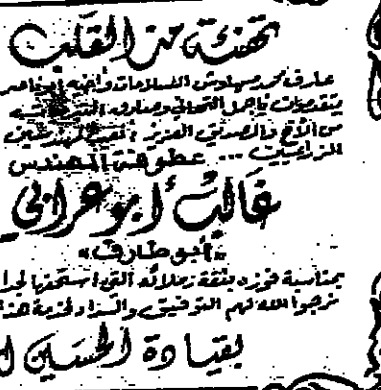 تهنئة من القلب
عارف محمد سهاوش السلامات وأخيه أبو ناصر
يتقدمان بأجمل التهاني وصادق التبريك
من الأخ والصديق العزيز نقيب المهندسين
الزراعيين ... عطوفة المهندس
غالب أبو عرابي
«أبو طارق»
بمناسبة فوزه بثقة زملائه التي استحقها
نرجوا الله لهم التوفيق والسداد لخدمة هذا
بقيادة الحسين